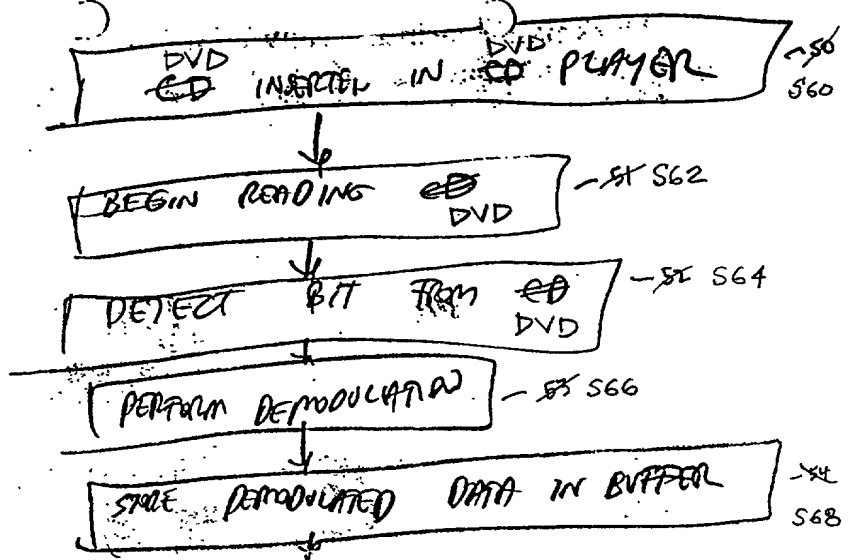 DVD DVD
CD INSERTED IN CD PLAYER
S0
S60
BEGIN READING CD
DVD
S1 S62
DETECT BIT FROM CD
DVD
S2 S64
PERFORM DEMODULATION
S3 S66
STORE DEMODULATED DATA IN BUFFER
S4
S68